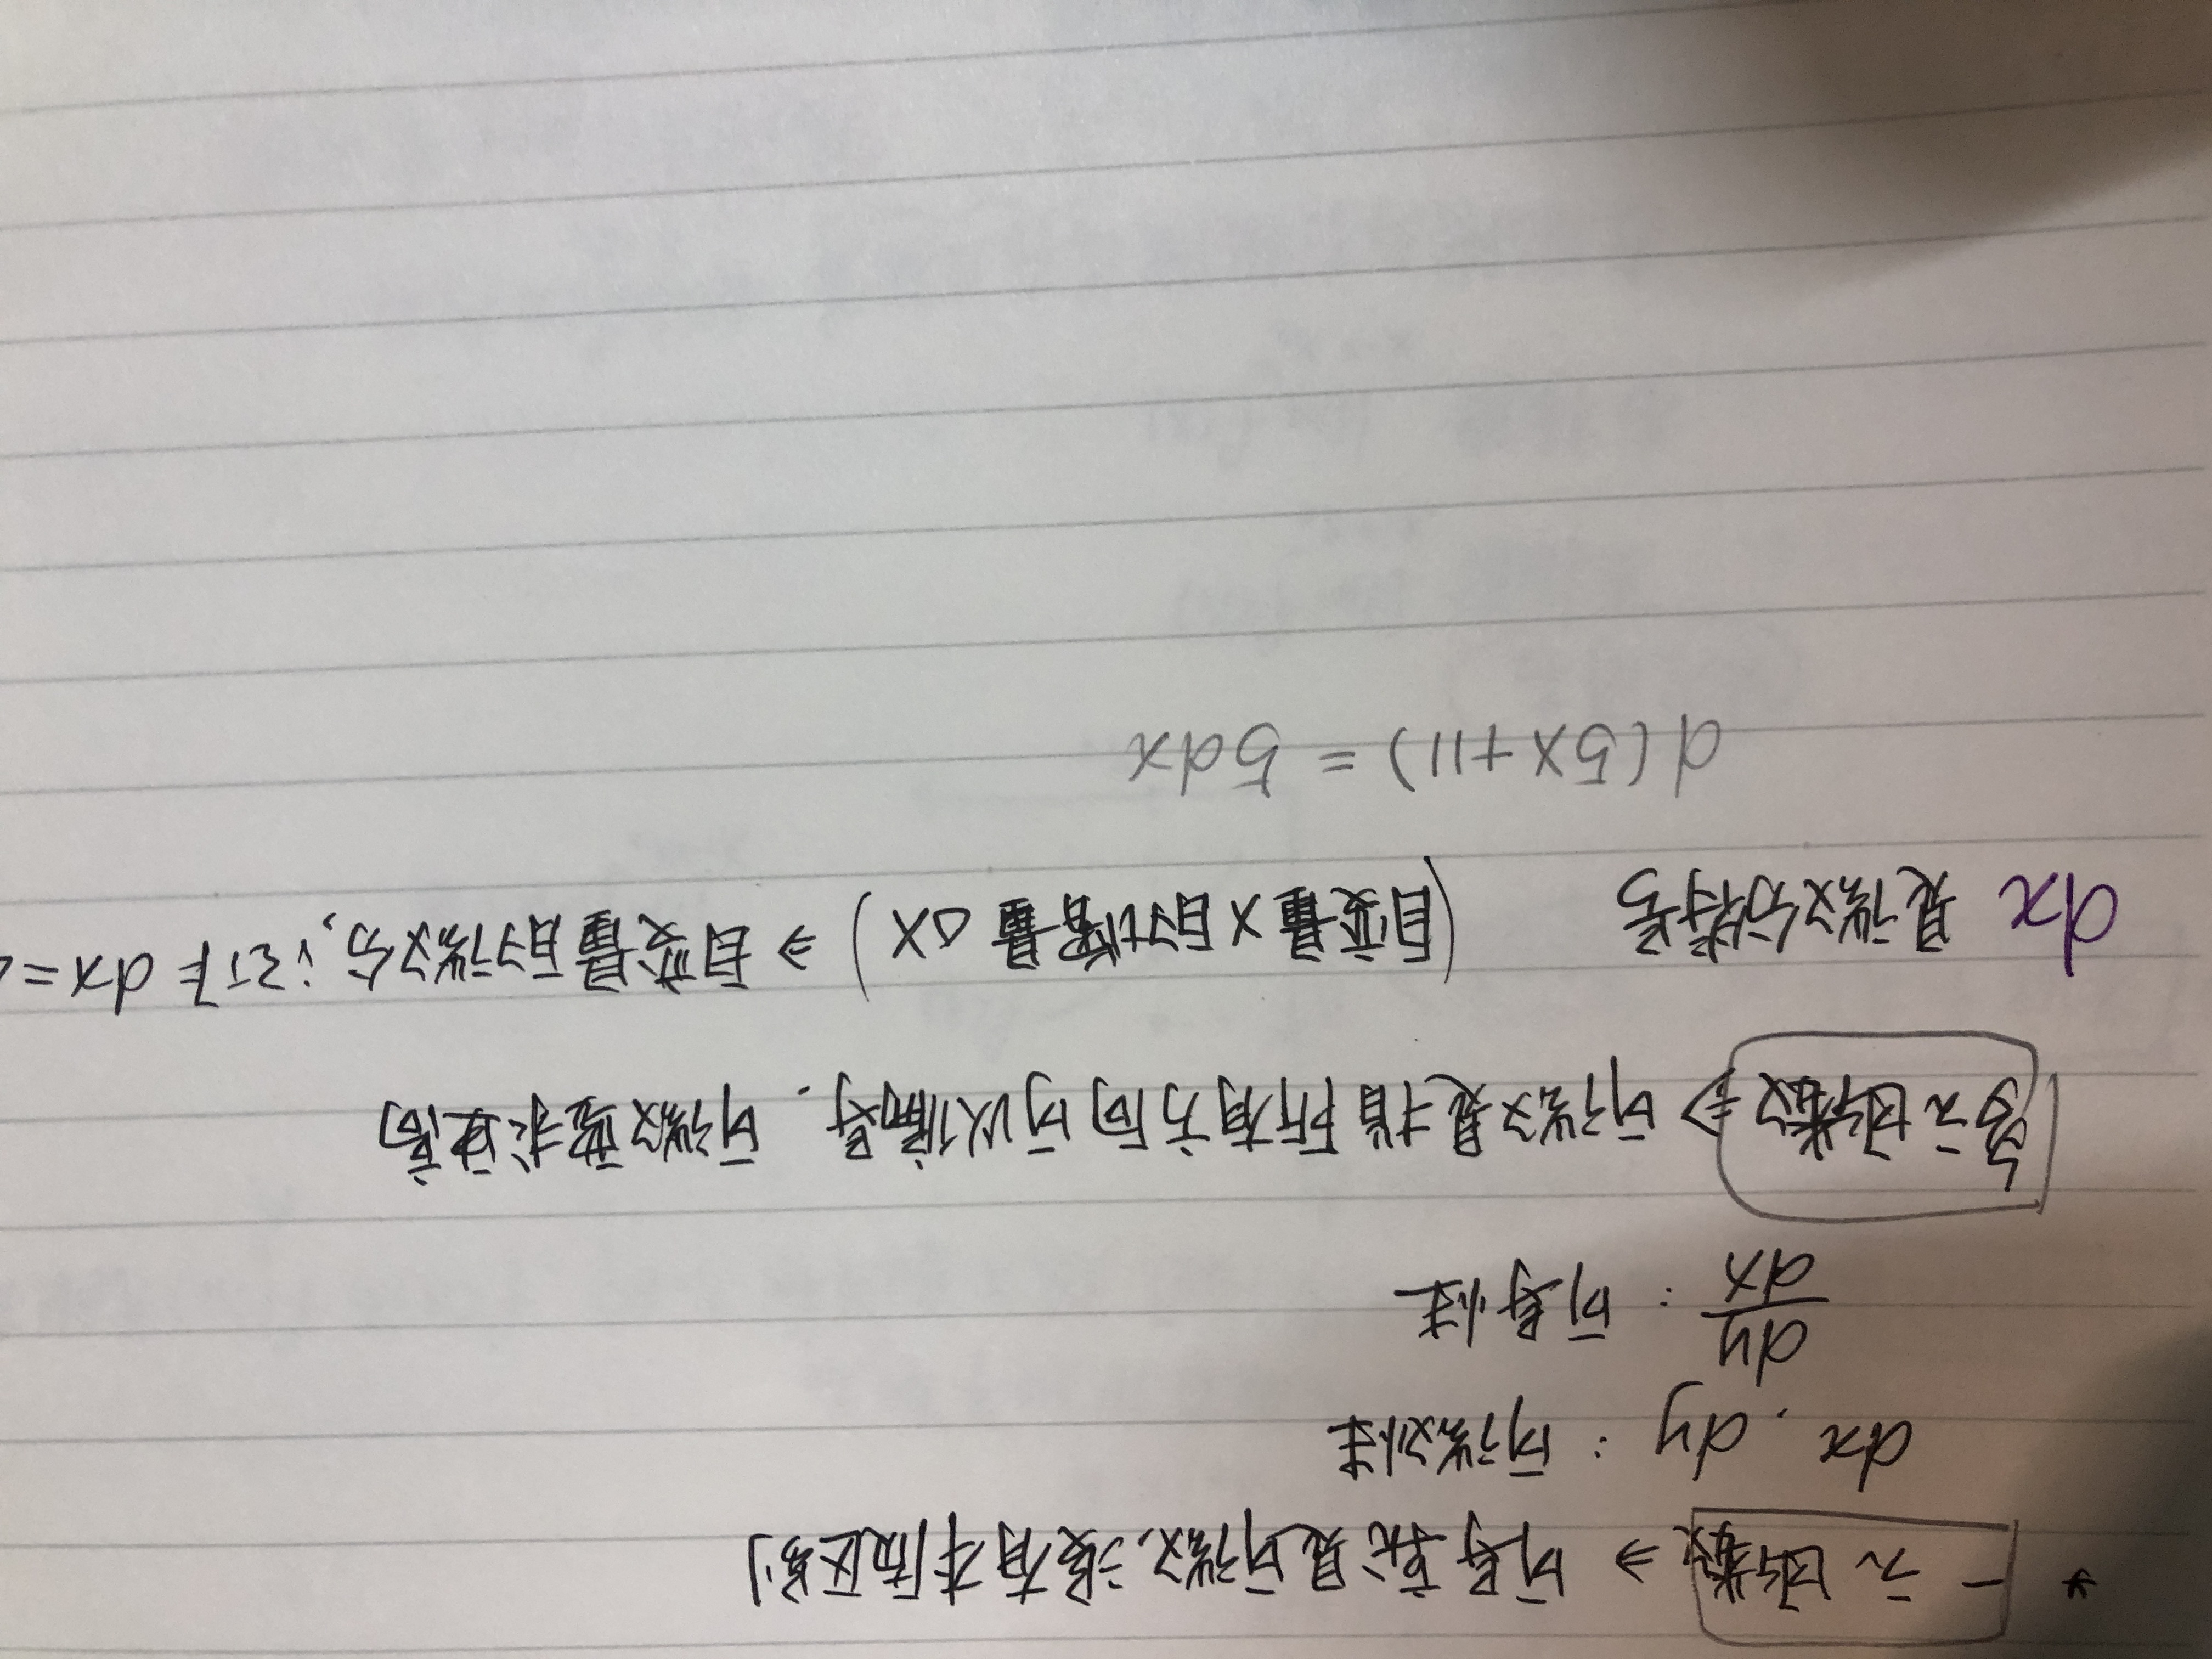 * 一元函数 ⇒ 可导就是可微,没有本质区别
dx, dy : 可微性
dy/dx : 可导性
多元函数 ⇒ 可微是指所有方向可以偏导, 可微要求更高
dx 是微分符号 (自变量x的增量 △x) ⇒ 自变量的微分, 记作 dx=
d(5x+11) = 5dx